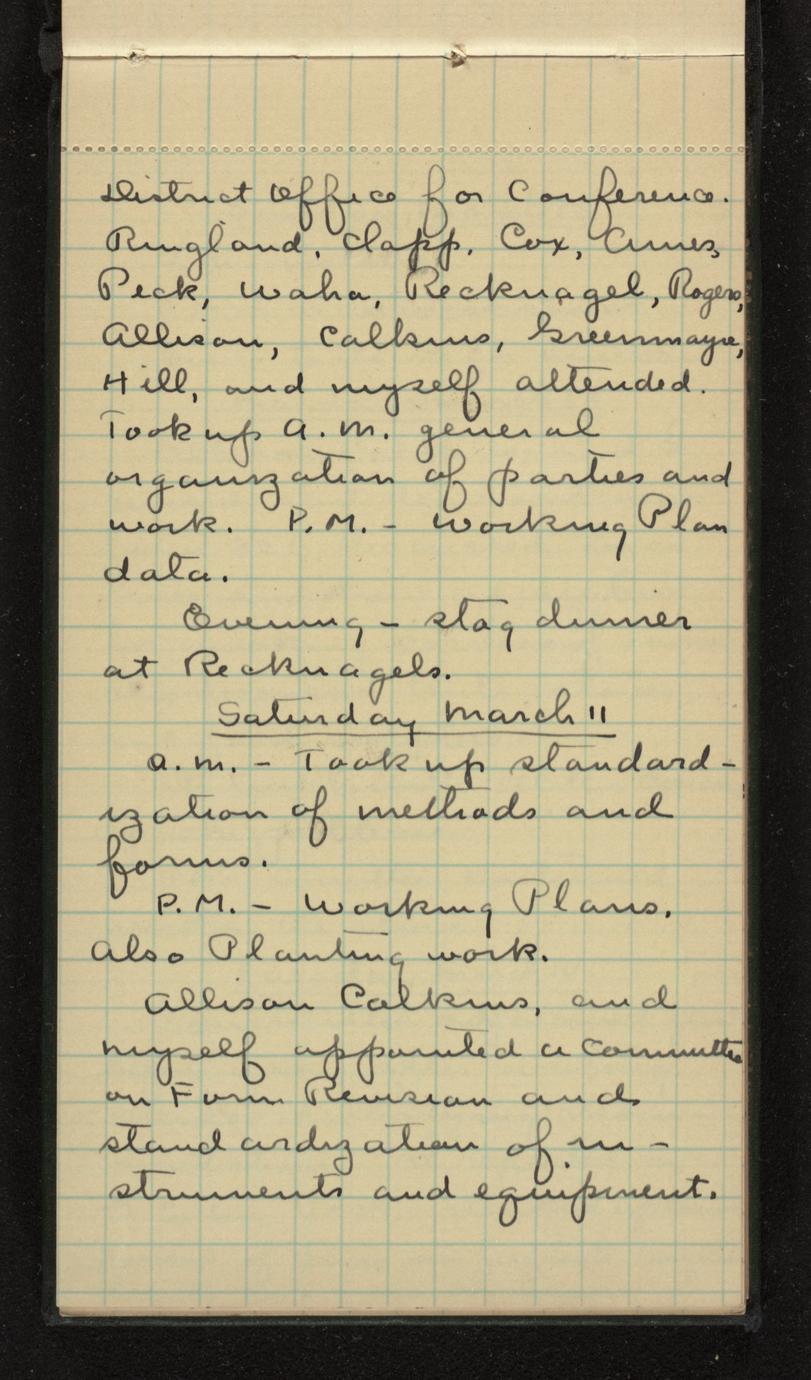 District Office for Conference.
Ringland, Clapp, Cox, Ames,
Peck, Waha, Recknagel, Rogers,
Allison, Calkins, Greenmayre,
Hill, and myself attended.
Took up A.M. general
organization of parties and
work. P.M. - Working Plan
data.
Evening - stag dinner
at Recknagels.
Saturday March 11
A.M. - Took up standard-
ization of methods and
forms.
P.M. - Working Plans.
Also Planting work.
Allison Calkins, and
myself appointed a committee
on Form Revision and
standardization of in-
struments and equipment.